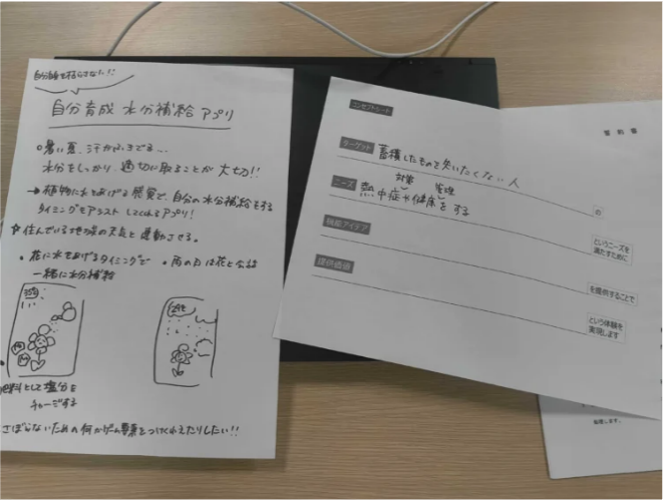 自分自身を枯らさない!!
自分育成 水分補給アプリ
○暑い夏、汗がふきでる...
水分をしっかり、適切に取ることが大切!!
→植物に水をあげる感覚で、自分の水分補給をする
タイミングをアシストしてくれるアプリ!
☆住んでいる地域の天気と連動させる。
・花に水をあげるタイミングで
一緒に水分補給
・雨の日は花と会話
肥料として塩分を
チャージする
さぼらないための何かゲーム要素をつけくわえたりしたい!!
コンセプトシート
ターゲット 蓄積したものを失いたくない人
の
ニーズ 熱中症や健康をする
対策 管理
というニーズを
満たすために
機能アイデア
を提供することで
提供価値
という体験を
実現します
誓約書